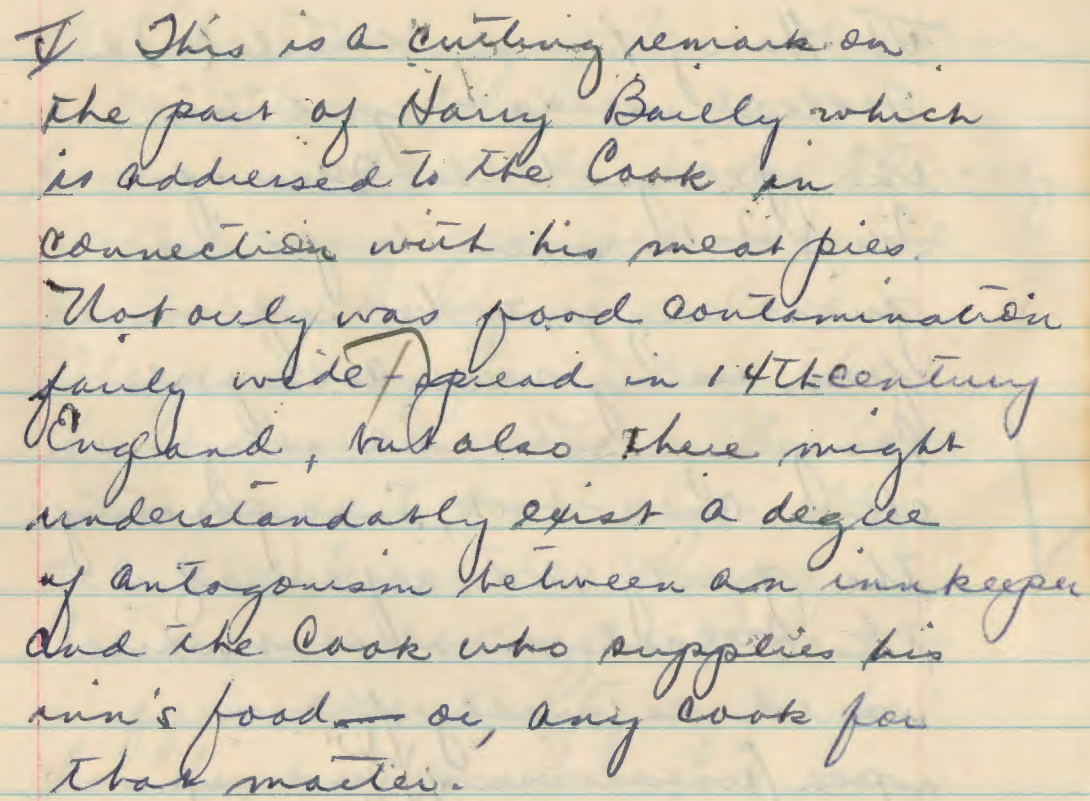 V This is a cutting remark on
the part of Harry Bailly which
is addressed to the Cook in
connection with his meat pies.
Not only was food contamination
fairly wide-spread in 14th century
England, but also there might
understandably exist a degree
of antagonism between an innkeeper
and the Cook who supplies his
inn's food — or, any cook for
that matter.